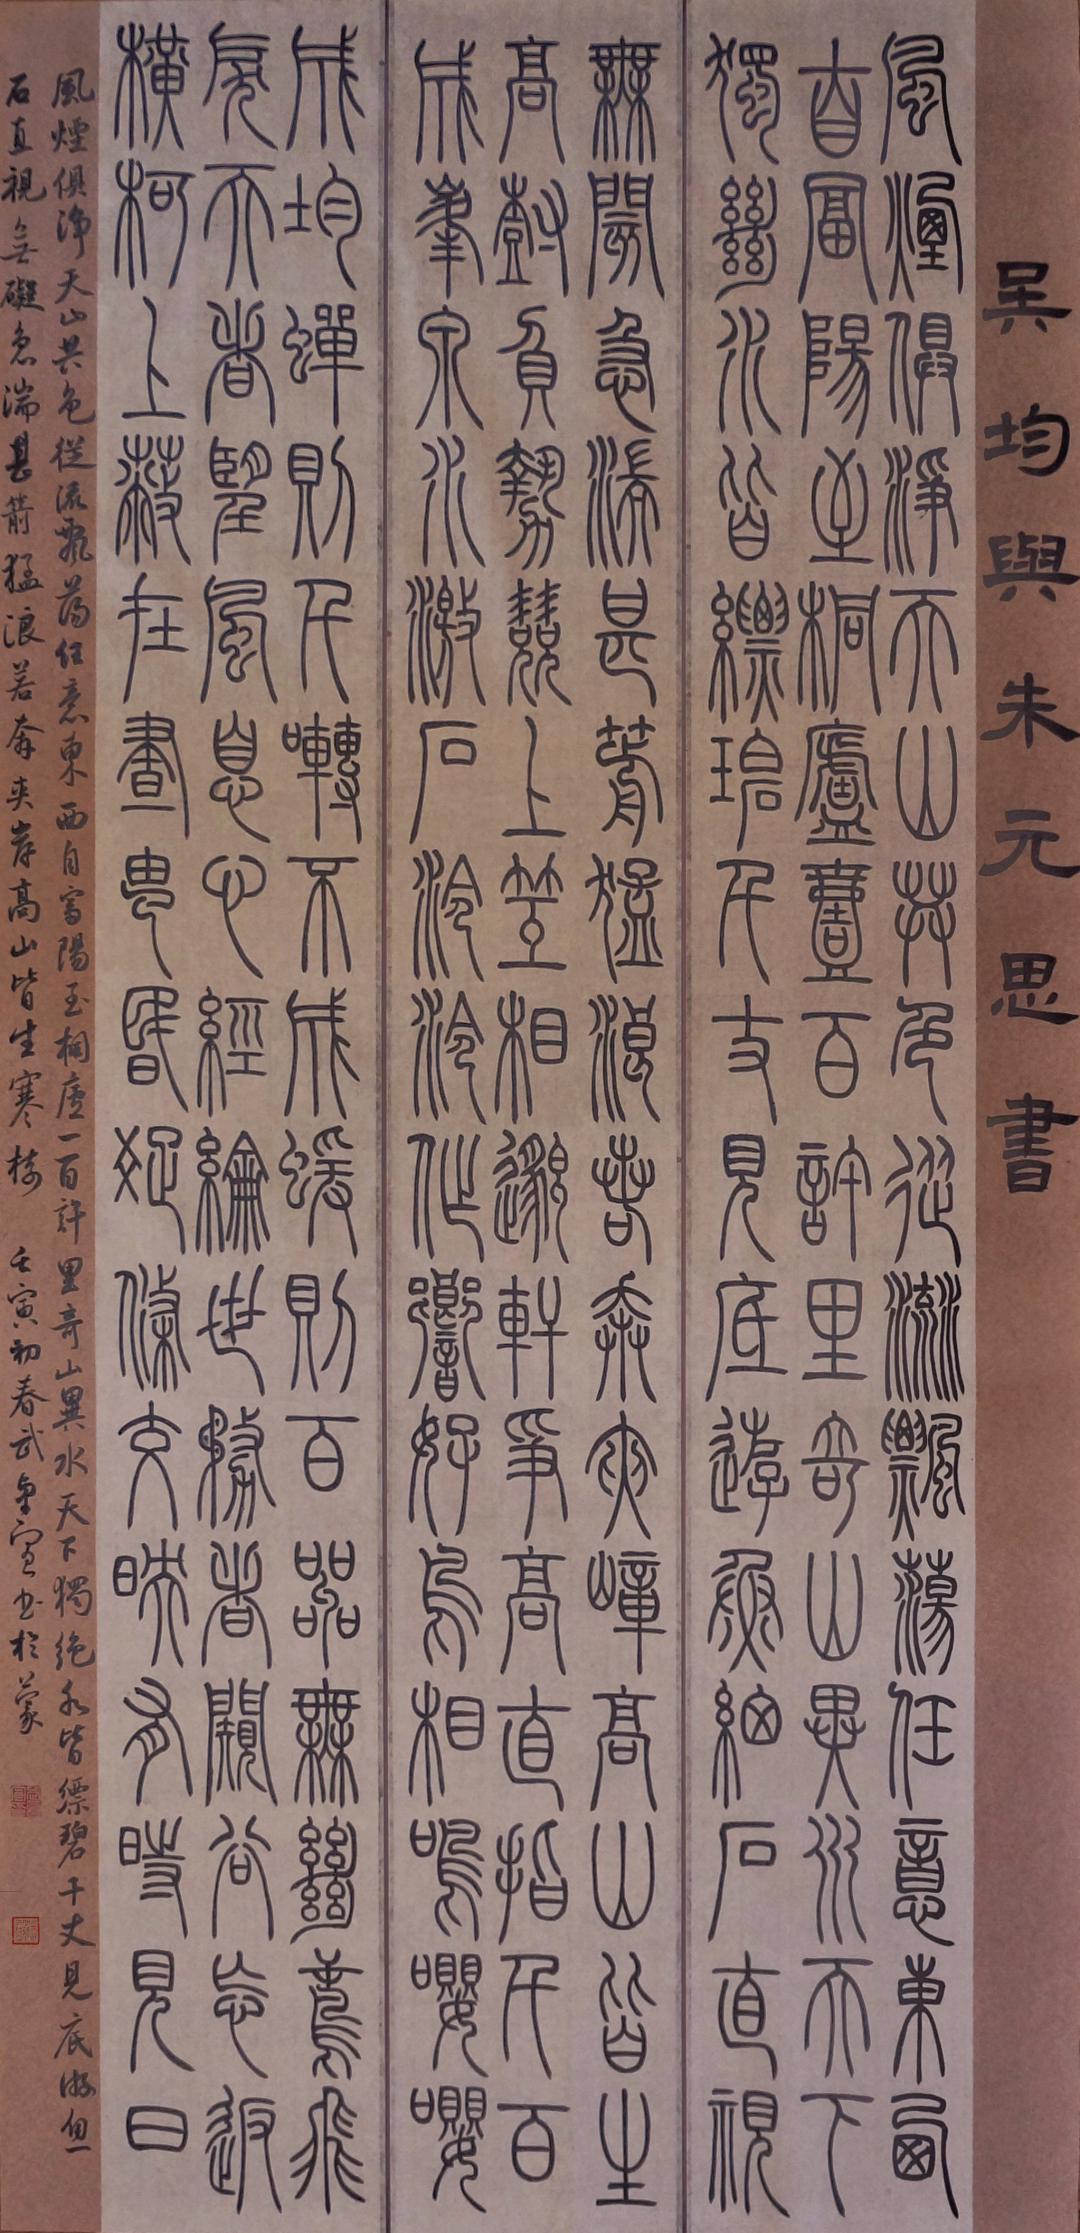 呉均與朱元思書
風煙俱淨天山共色從流飄蕩任意東西
自富陽至桐廬壹百許里奇山異水天下
獨絕水皆縹碧千丈見底游魚細石直視
無閡急湍甚箭猛浪若奔夾嶂高山皆生
高樹負勢競上互相邈軒爭高直指千百
成峯泉水激石泠泠作響好鳥相鳴嚶嚶
成均蟬則千囀不成蝯則百嘂無絕鳶飛
戾天者望風息心經綸世務者闚谷忘返
橫柯上蔽在晝猶昏疏條交映有時見日
風煙俱淨天山共色從流飄蕩任意東西自富陽至桐廬一百許里奇山異水天下獨絕水皆縹碧千丈見底游魚
石直視無礙急湍甚箭猛浪若奔夾岸高山皆生寒樹 壬寅初春武书於蒙